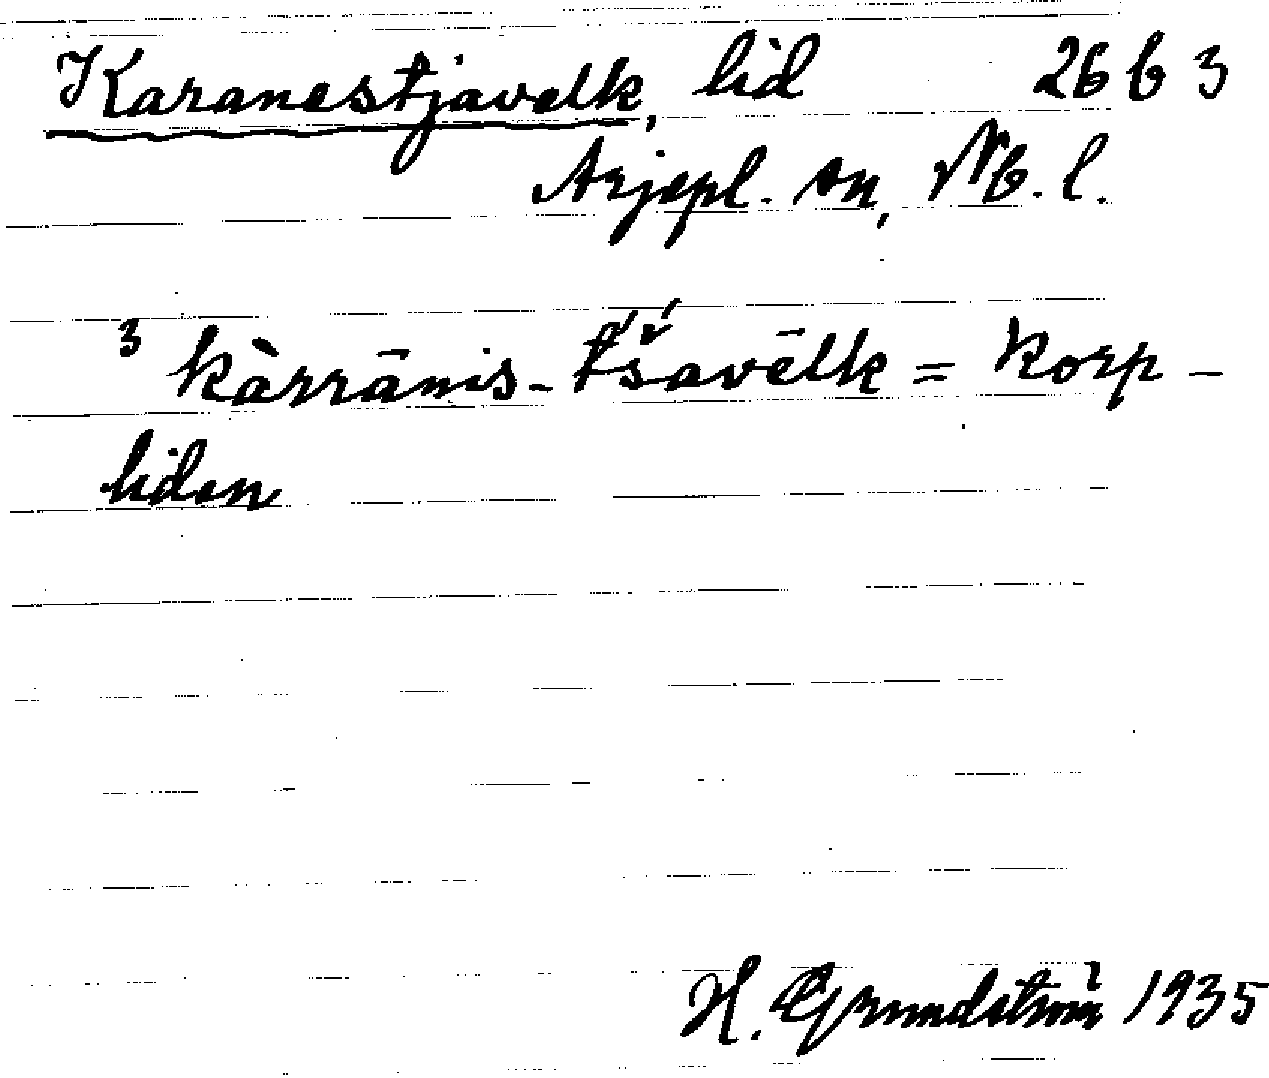 Karanestjavelk, lid 26 b 3
Arjepl. sn, Nb. l.
³ kàrrānis-t́š́avēlk = korp-
liden
H. Grundström 1935